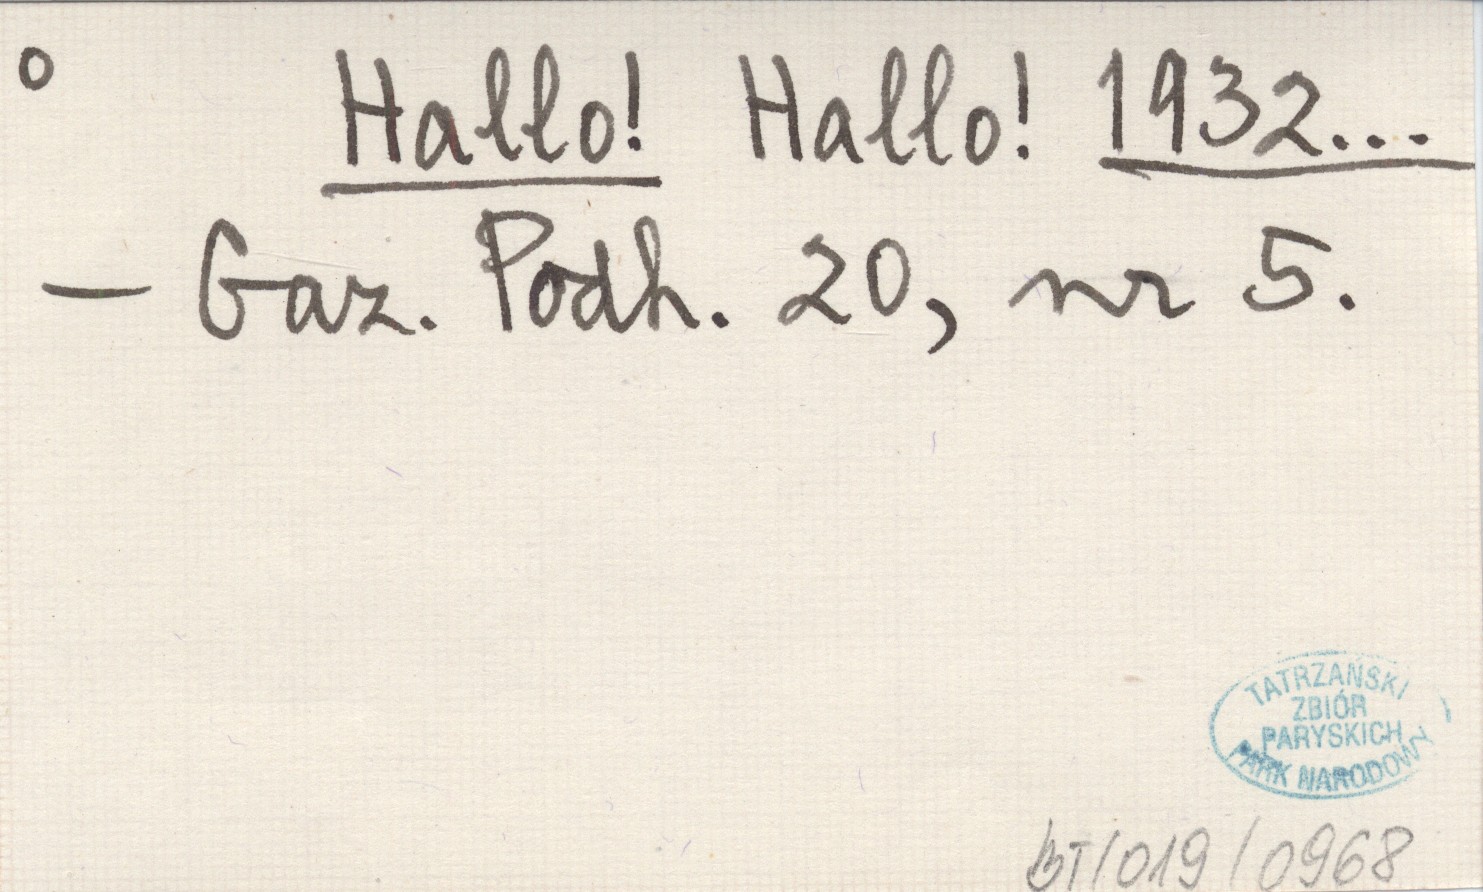 o Hallo! Hallo! 1932...
— Gaz. Podh. 20, nr 5.
TATRZAŃSKI
ZBIÓR
PARYSKICH
PARK NARODOWY
BT/019/0968